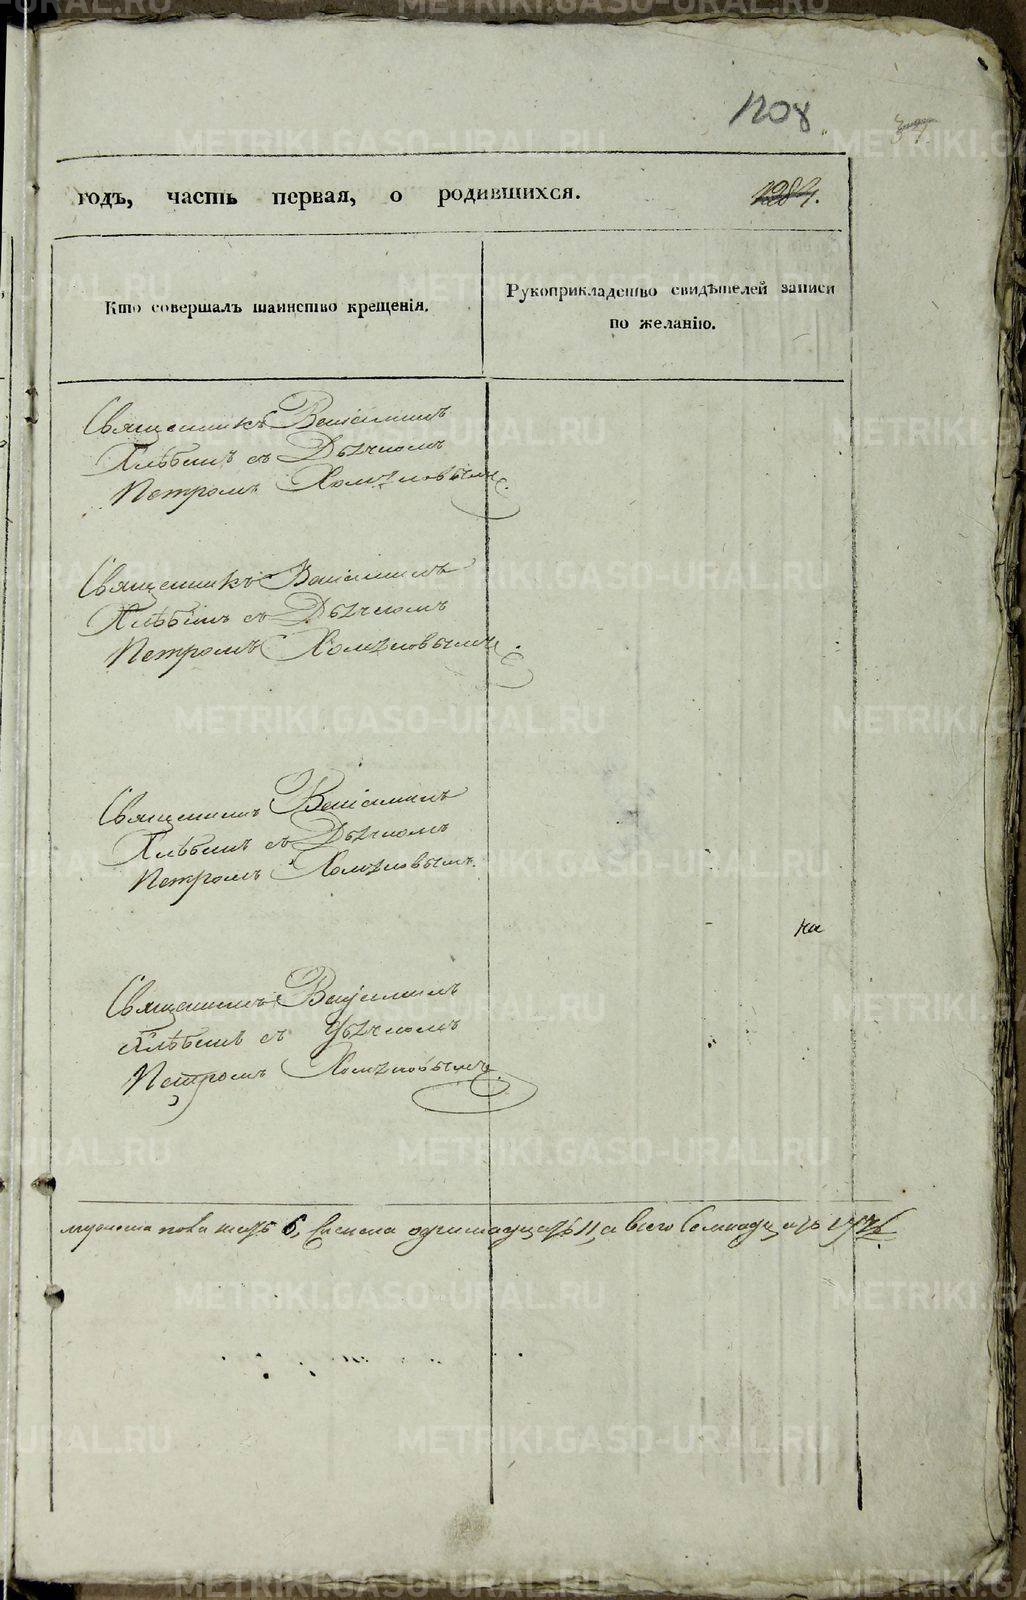 1208
37
годъ, часть первая, о родившихся.
1284.
Кто совершалъ таинство крещенія.
Рукоприкладство свидѣтелей записи
по желанію.
Священникъ Веніаминъ
Хлѣбинъ съ Дьячкомъ
Петромъ
Священникъ Веніаминъ
Хлѣбинъ съ Дьячкомъ
Петромъ
Священникъ Веніаминъ
Хлѣбинъ съ Дьячкомъ
Петромъ
на
Священникъ Веніаминъ
Хлѣбинъ съ Дьячкомъ
Петромъ
мужеска пола 6, женска одиннадцать 11, а всего семнадцать 17
METRIKI.GASO-URAL.RU